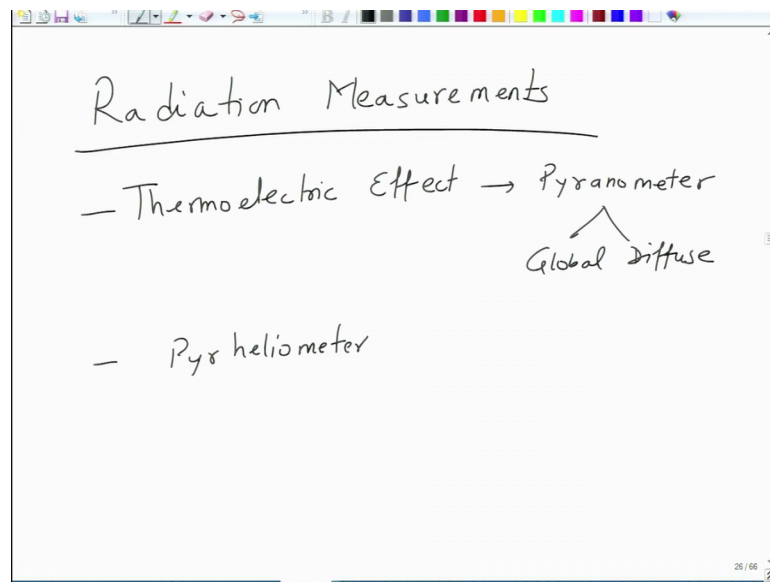 Radiation Measurements
— Thermoelectric Effect → Pyranometer
Global Diffuse
— Pyrheliometer
26 / 66